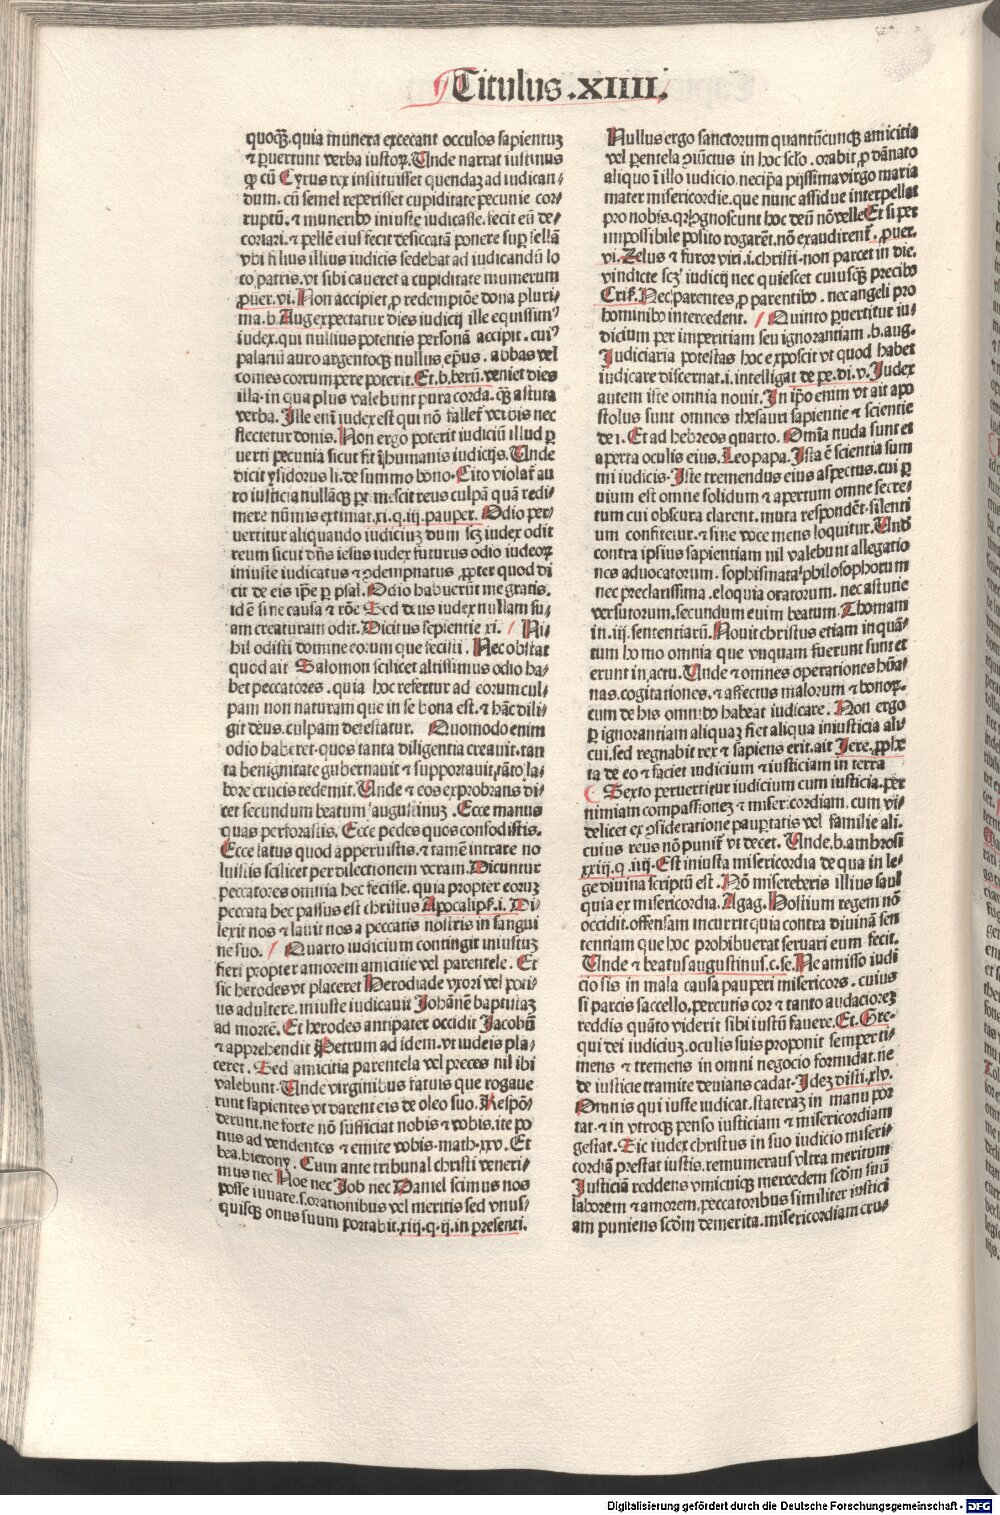 Titulus .XIIII.
quoqꝫ. quia munera excecant occulos sapientuꝫ
⁊ ꝑuertunt verba iustoꝝ. Unde narrat iustinus
ꝙ cū Cyrus rex instituisset quendaꝫ ad iudican⸗
dum. cū semel reperisset cupiditate pecunie cor⸗
ruptū. ⁊ muneribꝰ iniuste iudicasse. fecit eū de⸗
coriari. ⁊ pellē eius fecit desiccatā ponere suꝑ sellā
vbi filius illius iudicis sedebat ad iudicandū lo
co patris. vt sibi caueret a cupiditate munerum
ꝓuer. vi. Non accipiet ꝓ redemptōe dona pluri⸗
ma. b. Aug expectatur dies iudicij ille equissimꝰ
iudex. qui nullius potentis personā accipit. cuiꝰ
palatiū auro argentoqꝫ nullus ep̄us. abbas vel
comes corrumpere poterit. Et. b. berū. veniet dies
illa. in qua plus valebunt pura corda. qꝫ astuta
verba. Ille eni iudex est qui nō fallet̄ verbis nec
flectetur donis. Non ergo poterit iudiciū illud ꝑ
uerti pecunia sicut fit ī humanis iudicijs. Unde
dicit ysidorus li. de summo bono. Cito violat̄ au
ro iusticia nullāqꝫ ꝑtimescit reus culpā quā redi⸗
mere nūmis extimat. xi. q. iij. pauper. Odio per⸗
uertitur aliquando iudiciuꝫ dum scꝫ iudex odit
reum sicut dn̄s iesus iudex futurus odio iudeoꝝ
iniuste iudicatus ⁊ ꝯdempnatus ꝓpter quod di
cit de eis ip̄e ꝑ psal. Odio habuerūt me gratis.
id ē sine causa ⁊ rōe Sed deus iudex nullam su⸗
am creaturam odit. Dicitus sepientie xi. Ni⸗
hil odisti domine eorum que fecisti. Nec obstat
quod ait Salomon scilicet altissimus odio ha⸗
bet peccatores. quia hoc refertur ad eorum cul⸗
pam non naturam que in se bona est. ⁊ hāc dili⸗
git deus. culpam detestatur. Quomodo enim
odio haberet. quos tanta diligentia creauit. tan
ta benignitate gubernauit ⁊ supportauit. tāto la⸗
bore crucis redemit. Unde ⁊ eos exprobrans di⸗
cet secundum beatum augustinuꝫ. Ecce manus
quas perforastis. Ecce pedes quos confodistis.
Ecce latus quod apperuistis. ⁊ tamē intrare no
luistis scilicet per dilectionem veram. Dicuntur
peccatores omnia hec fecisse. quia propter eoruꝫ
peccata hec passus est christus Apocalipẜ. i. Di⸗
lexit nos ⁊ lauit nos a peccatis nostris in sangui
ne suo. Quarto iudicium contingit iniustuꝫ
fieri propter amorem amicitie vel parentele. Et
sic herodes vt placeret Herodiade vxori vel poti⸗
us adultere. iniuste iudicauit Johānē baptistaꝫ
ad mortē. Et herodes antipater occidit Jacobū
⁊ apprehendit Petrum ad idem. vt iudeis pla⸗
ceret. Sed amicitia parentela vel preces nil ibi
valebunt. Unde virginibus fatuis que rogaue
runt sapientes vt darent eis de oleo suo. Respō⸗
derunt. ne forte nō sufficiat nobis ⁊ vobis. ite po
tius ad vendentes ⁊ emite vobis. math. xxv. Et
bea. hierony. Cum ante tribunal christi veneri⸗
mus nec Noe nec Job nec Daniel scimus nos
posse iuuare. s. orationibus vel meritis sed vnus⸗
quisqꝫ onus suum portabit. xiij. q. ij. in presenti.
Nullus ergo sanctorum quantūcunqꝫ amicitia
vel parentela ꝯiūctus in hoc scl̄o. orabit ꝓ dānato
aliquo ī illo iudicio. nec ip̄a pijssima virgo maria
mater misericordie. que nunc assidue interpellat
pro nobis. qꝛ cognoscunt hoc deū nō velle Et si per
impossibile posito rogarēt. nō exaudirent̄. ꝓuer.
vi. Zelus ⁊ furor viri. i. christi. non parcet in die.
vindicte scꝫ iudicij nec quiescet cuiusqꝫ precibꝰ
Criẜ. Nec parentes ꝓ parentibꝰ. nec angeli pro
hominibꝰ intercedent. Quinto ꝑuertitur iu⸗
dicium per imperitiam seu ignorantiam. b. aug.
Judiciaria potestas hoc exposcit vt quod habet
iudicare discernat. i. intelligat de pe. di. v. Judex
autem iste omnia nouit. In ip̄o enim vt ait apo
stolus sunt omnes thesauri sapientie ⁊ scientie
de i. Et ad hebreos quarto. Omīa nuda sunt et
aperta oculis eius. Leo papa. Ista ē scientia sum
mi iudicis. Iste tremendus eius aspectus. cui ꝑ
uium est omne solidum ⁊ apertum omne secre⸗
tum cui obscura clarent. muta respondēt. silenti
um confitetur. ⁊ sine voce mens loquitur. Unde
contra ipsius sapientiam nil valebunt allegatio
nes aduocatorum. sophismata philosophorum
nec preclarissima. eloquia oratorum. nec astutie
versutorum. secundum enim beatum. Thomam
in. iij. sententiarū. Nouit christus etiam inquā⸗
tum homo omnia que vnquam fuerunt sunt et
erunt in actu. Unde ⁊ omnes operationes hūa⸗
nas. cogitationes. ⁊ affectus malorum ⁊ bonoꝝ.
cum de his omnibꝰ habeat iudicare. Non ergo
ꝑ ignorantiam aliquaꝫ fiet aliqua iniusticia ali
cui. sed regnabit rex ⁊ sapiens erit. ait Jere. ꝓplx
ta de eo ⁊ faciet iudicium ⁊ iusticiam in terra
Sexto peruertitur iudicium cum iusticia. per
nimiam compassioneꝫ ⁊ misericordiam. cum vi⸗
delicet ex ꝯsideratione pauꝑtatis vel familie ali.
cuius reus nō punit̄ vt decet. Unde. b. ambrosi
xxiij. q. iiij. Est iniusta misericordia de qua in le⸗
ge diuina scriptū est. Nō misereberis illius saul
quia ex misericordia. Agag. Hostium regem nō
occidit. offensam incurrit quia contra diuinā sen
tentiam que hoc prohibuerat seruari eum fecit.
Unde ⁊ beatus augustinus. c. se. Ne amisso iudi
cio sis in mala causa pauperi misericors. cuius
si parcis saccello. percutis cor ⁊ tanto audacioreꝫ
reddis quāto viderit sibi iustū fauere. Et. Gre⸗
qui dei iudiciuꝫ. oculis suis proponit semper ti⸗
mens ⁊ tremens in omni negocio formidat. ne
de iusticie tramite deuians cadat. Ideꝫ disti. xlv.
Omnis qui iuste iudicat. stateraꝫ in manu por
tat. ⁊ in vtroqꝫ penso iusticiam ⁊ misericordiam
gestat. Sic iudex christus in suo iudicio miseri⸗
cordiā prestat iustis. remunerans vltra meritum
Justiciā reddens vnicuiqꝫ mercedem scdm̄ suū
laborem ⁊ amorem. peccatoribus similiter iustici
am puniens scdm̄ demerita. misericordiam cru⸗
Digitalisierung gefördert durch die Deutsche Forschungsgemeinschaft - DFG